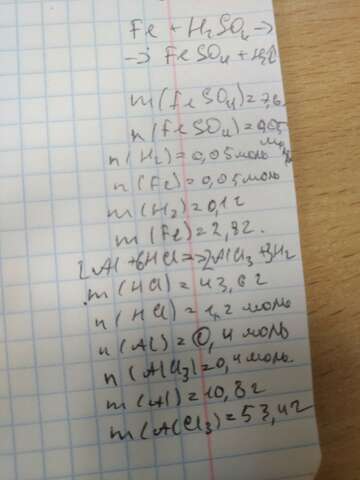 Fe + H₂SO₄ →
→ FeSO₄ + H₂↑
m(FeSO₄)=7,6
n(FeSO₄)=0,05 моль
n(H₂)=0,05 моль
n(Fe)=0,05 моль
m(H₂)=0,1г
m(Fe)=2,8г.
2Al+6HCl=>2AlCl₃+3H₂
m(HCl)=43,8г
n(HCl)=1,2 моль
n(Al)=0,4 моль
n(AlCl₃)=0,4 моль.
m(Al)=10,8г
m(AlCl₃)=53,4г